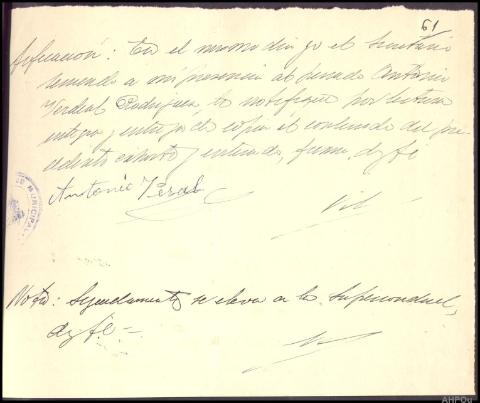 61
Notificación: En el mismo dia yo el Secretario
teniendo a mi presencia al penado Antonio
Verdeal Rodriguez, le notifiqué por lectura
integra y entrega de copia el contenido del pre-
cedente exhorto y enterado, firma, doy fé
Antonio Verdeal
MUNICIPAL
Nota: Seguidamente se eleva a la Superioridad,
doy fé =.
AHPOu